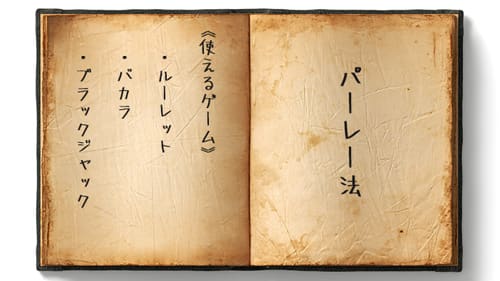 パーレー法
《使えるゲーム》
・ルーレット
・バカラ
・ブラックジャック